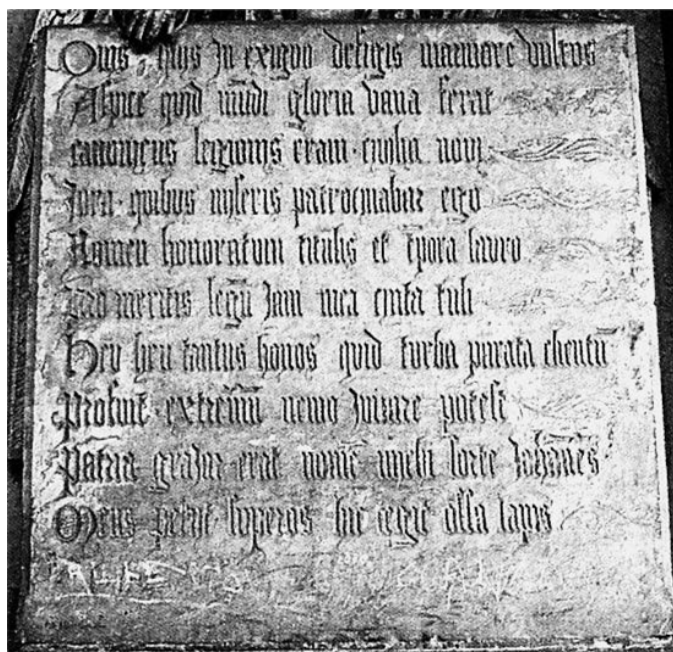 Quis quis Jn exiguo defigis marmore vultus
Aspice quid mūdi gloria vana ferat
canonicus legionis eram · civilia novi
Jura · quibus miseris patrocinabar ego
Nomen honoratum titulis et tp̄ora lauro
Pro meritis legū Jam mea cincta tuli
Heu heu tantus honos quid turba parata clientū
Profuit · extremū nemo Juvare potest
Patria grajar erat nomē michi sorte Johānes
Mens petiit superos hic tegit ossa lapis